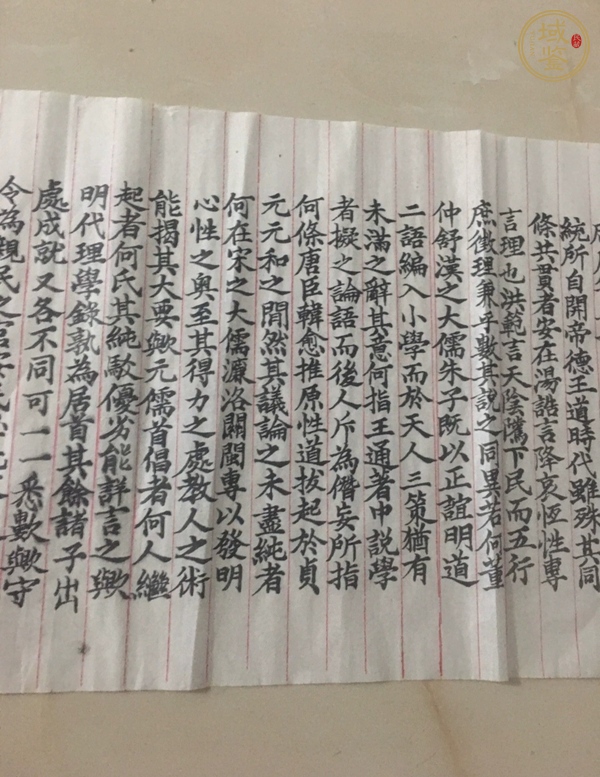 統所自開帝德王道時代雖殊其同
條共貫者安在湯誥言降衷恆性專
言理也洪範言天陰隲下民而五行
庶徵理兼乎數其說之同異若何董
仲舒漢之大儒朱子既以正誼明道
二語編入小學而於天人三策猶有
未滿之辭其意何指王通著中說學
者擬之論語而後人斥為僭妄所指
何條唐臣韓愈推原性道拔起於貞
元元和之間然其議論之未盡純者
何在宋之大儒濂洛關閩專以發明
心性之奧至其得力之處教人之術
能揭其大要歟元儒首倡者何人繼
起者何氏其純駁優劣能詳言之歟
明代理學錄孰為居首其餘諸子出
處成就又各不同可一一悉數歟守
令為親民之官安民
域鑒